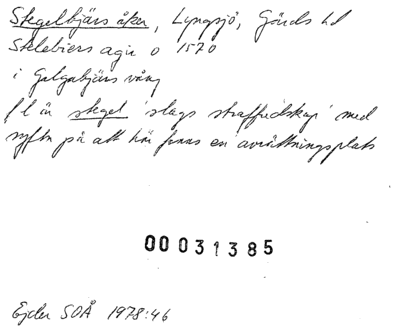 Stegelbjärs åker, Lyngsjö, Gärds hd
Stelebiers agir o 1570
i Galgabjärs vång
fl är stegel 'slags straffredskap' med
syftn på att här finns en avrättningsplats
00031385
Ejder SOÅ 1978:46